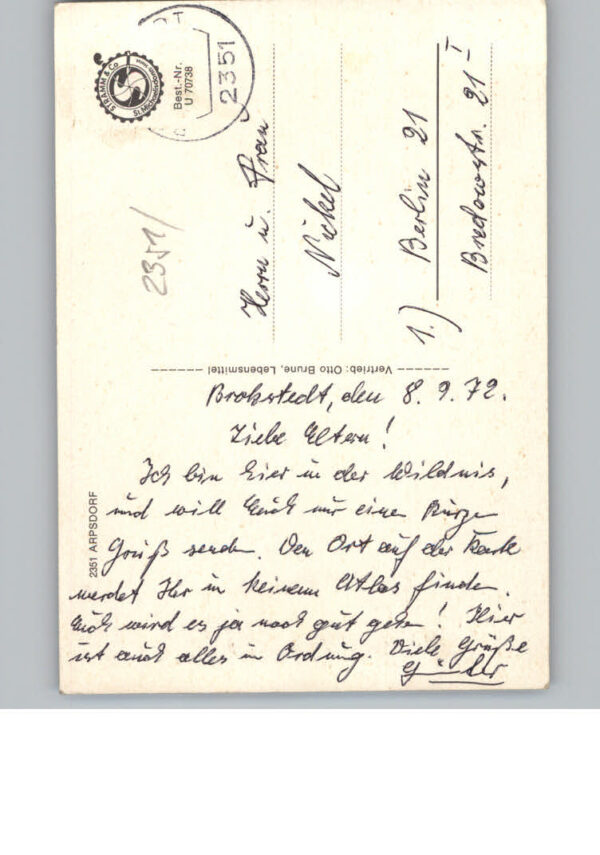 STRAMM & Co
St. Michaelisdonn
Best.-Nr.
U 70738
2351
2351/
Herrn u. Frau
Nickel
1.) Berlin 21
Bredowstr. 21 I
Vertrieb: Otto Brune, Lebensmittel
2351 ARPSDORF
Brokstedt, den 8. 9. 72.
Liebe Eltern!
Ich bin hier in der Wildnis,
und will Euch nur einen kurzen
Gruß senden. Den Ort auf der Karte
werdet Ihr in keinem Atlas finden.
Euch wird es ja noch gut gehen! Hier
ist auch alles in Ordnung. Viele Grüße